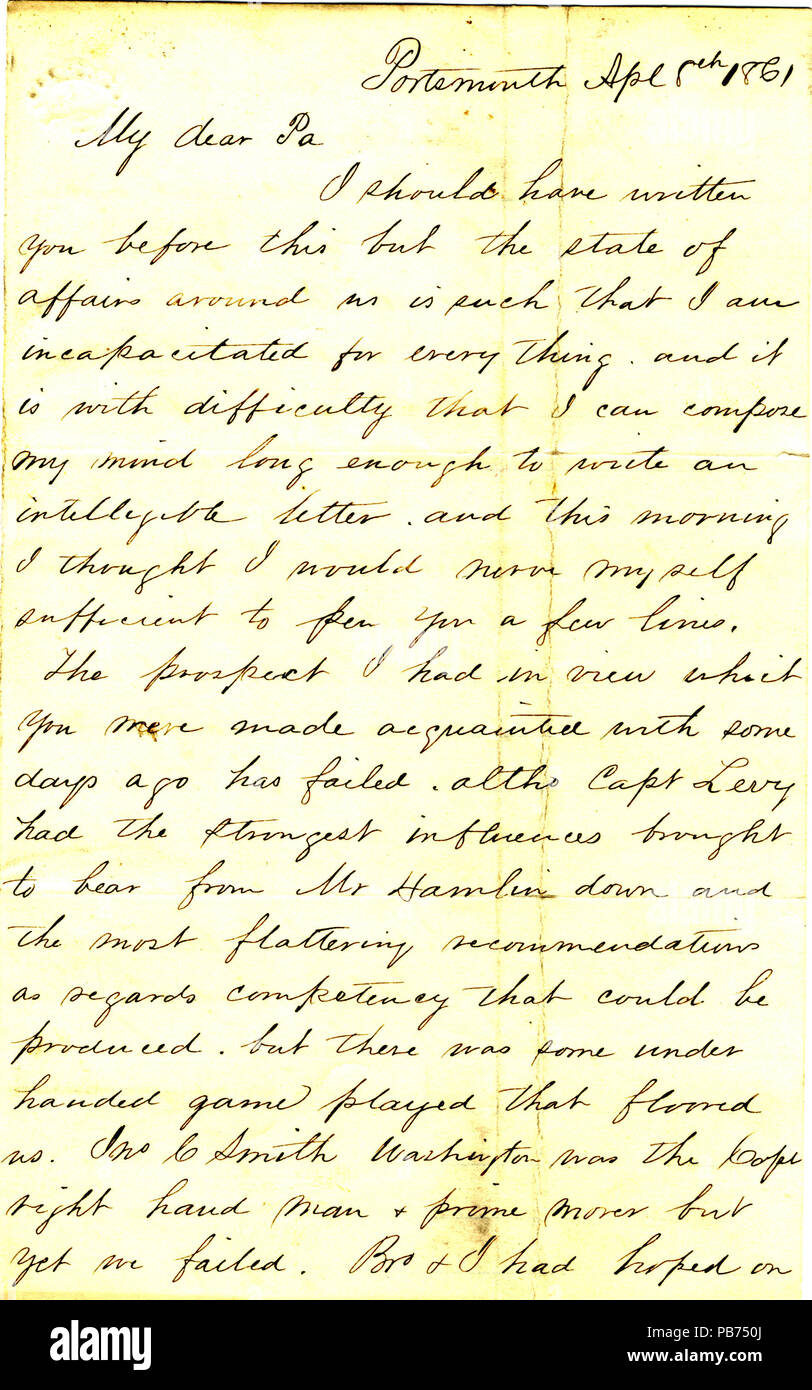 Portsmouth Apl 8th 1861
My dear Pa
I should have written
you before this but the state of
affairs around us is such that I am
incapacitated for every thing. and it
is with difficulty that I can compose
my mind long enough to write an
intellegible letter. and this morning
I thought I would nerve myself
sufficient to pen you a few lines.
The prospect I had in view which
you were made acquainted with some
days ago has failed. altho Capt Levy
had the strongest influences brought
to bear from Mr Hamlin down and
the most flattering recommendations
as regards competency that could be
produced. but there was some under
handed game played that floored
us. Jno C Smith Washington was the Capt
right hand man & prime mover but
yet we failed. Bro & I had hoped on
alamy
Image ID: PB750J
www.alamy.com